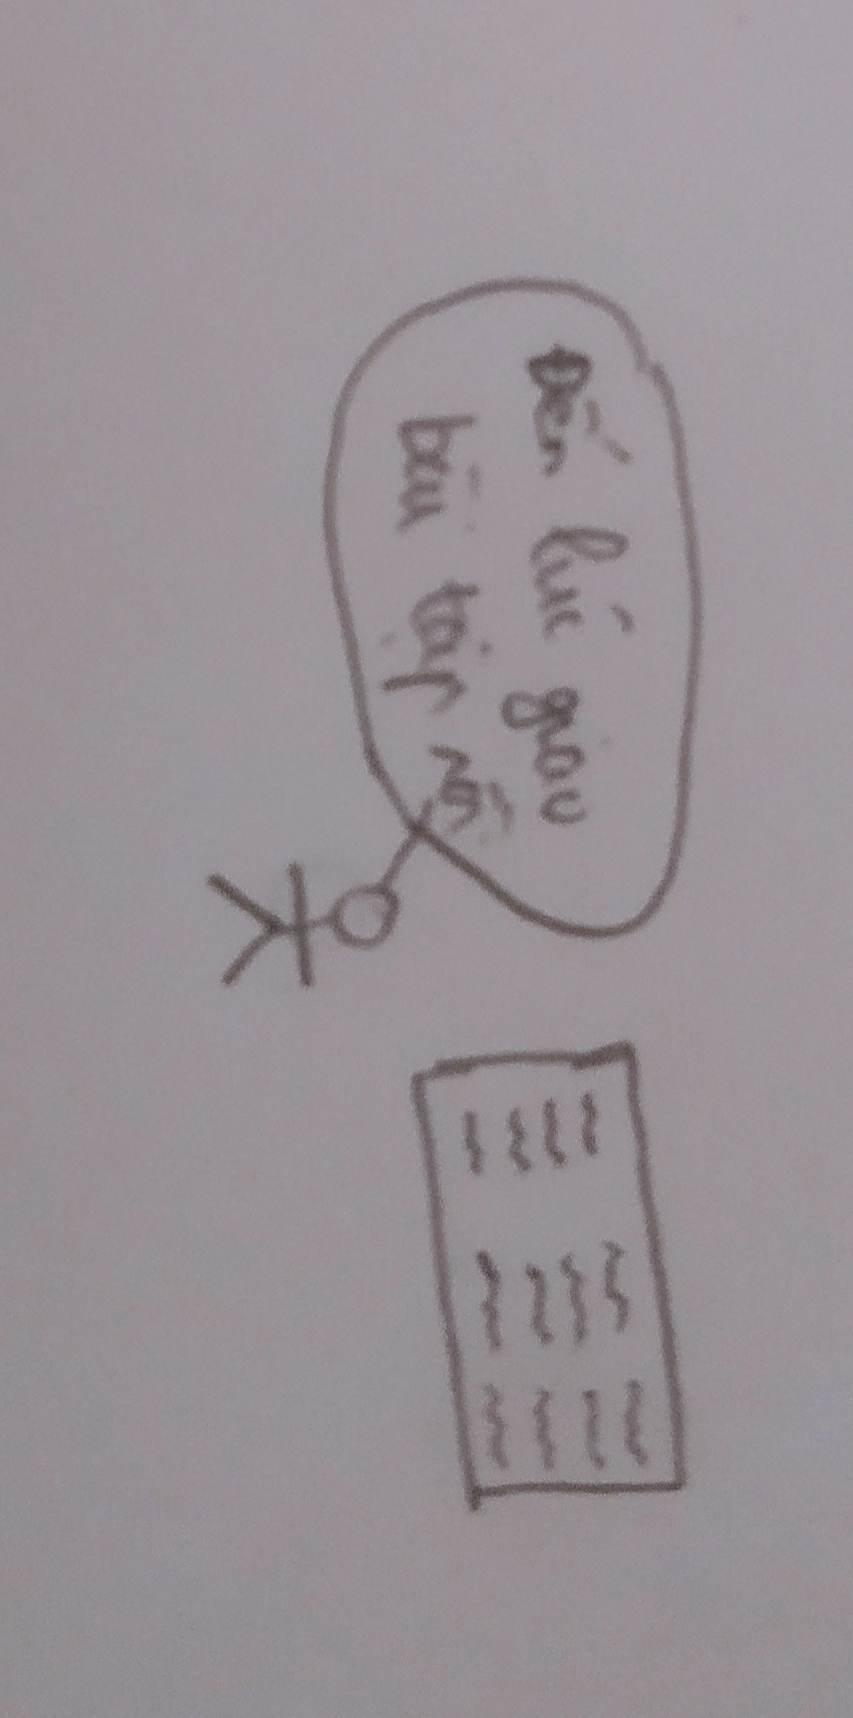 Đến lúc giao
bài tập rồi